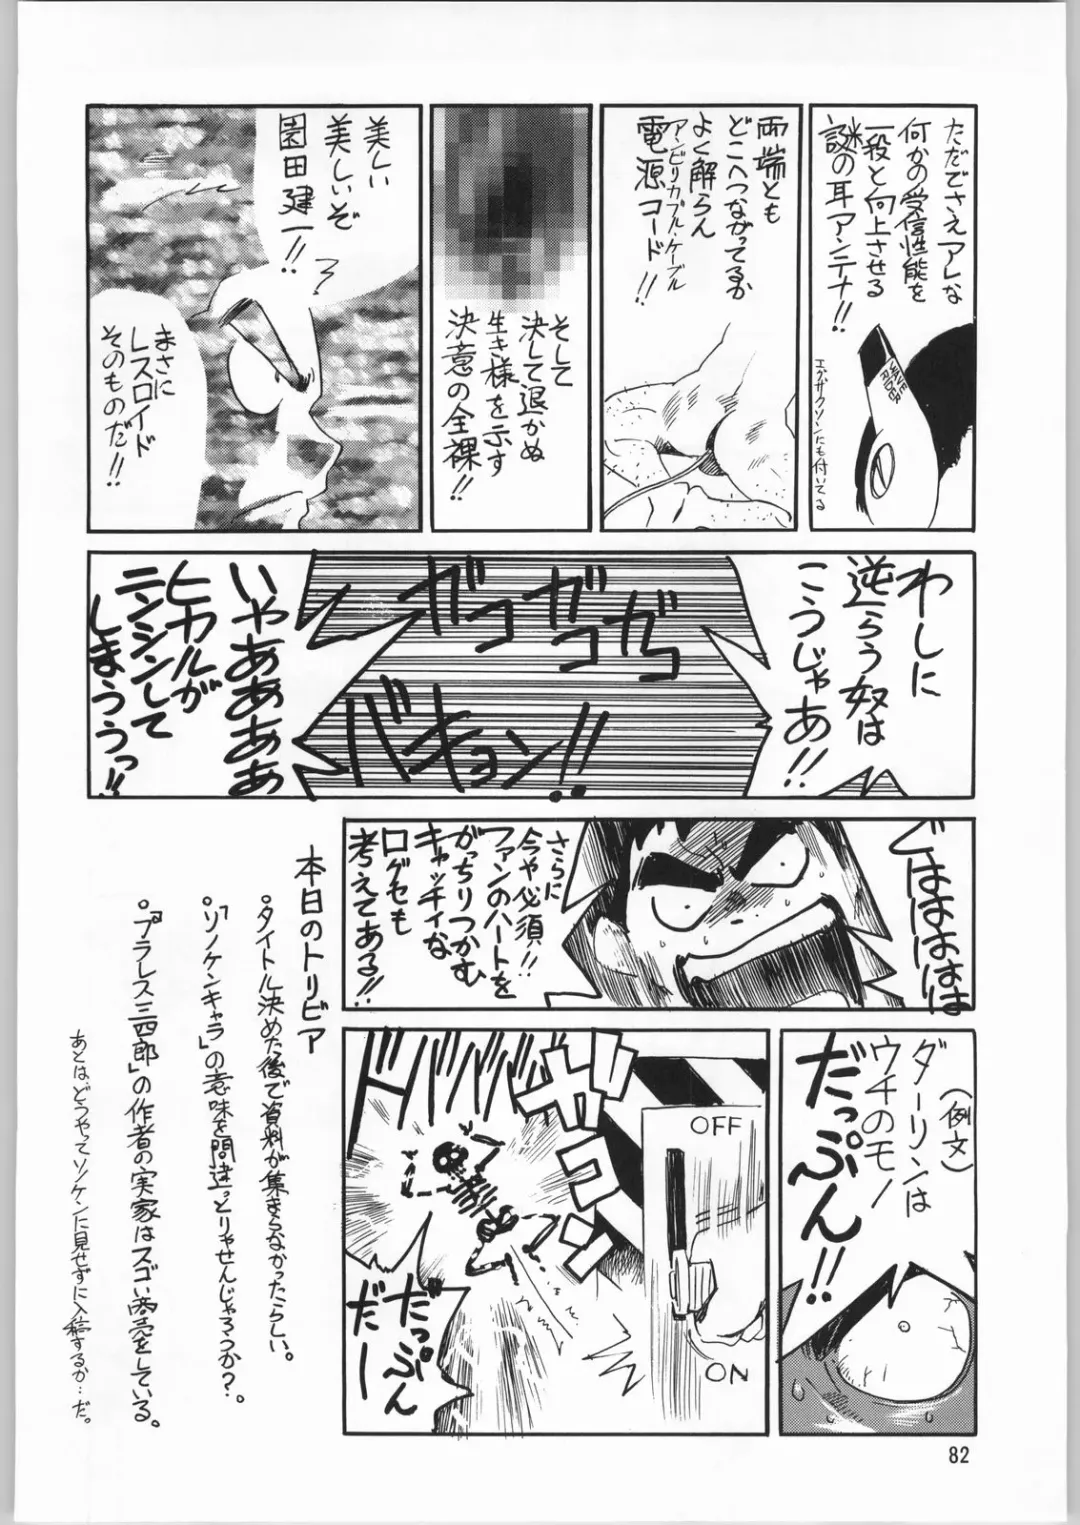 ただでさえアレな
何かの受信性能を
一段と向上させる
謎の耳アンテナ!!
エクサクソンにも付いてる
両端とも
どこへつながってるか
よく解らん
アンビリカブル・ケーブル
電源コード!!
そして
決して退かぬ
生き様を示す
決意の全裸!!
美しい
美しいぞ
園田建一!!
まさに
レスロイド
そのものだ!!
わしに
逆らう奴は
こうじゃあ!!
ガコガコガコ
バキョン!!
いやああああ
ヒカルが
ニンシンして
しまううっ!!
どはははは
さらに
今や必須!!
ファンのハートを
がっちりつかむ
キャッチィな
口グセも
考えてある!!
(例文)
ダーリンは
ウチのモノ
だっぷん!!
OFF
ON
ガコン
だっぷん
だー
本日のトリビア
・タイトル決めた後で資料が集まらなかったらしい。
・「ソノケンキャラ」の意味を間違っとりゃせんじゃろうか?。
・「プラレス三四郎」の作者の実家はスゴい商売をしている。
あとはどうやってソノケンに見せずに入稿するか…だ。
82